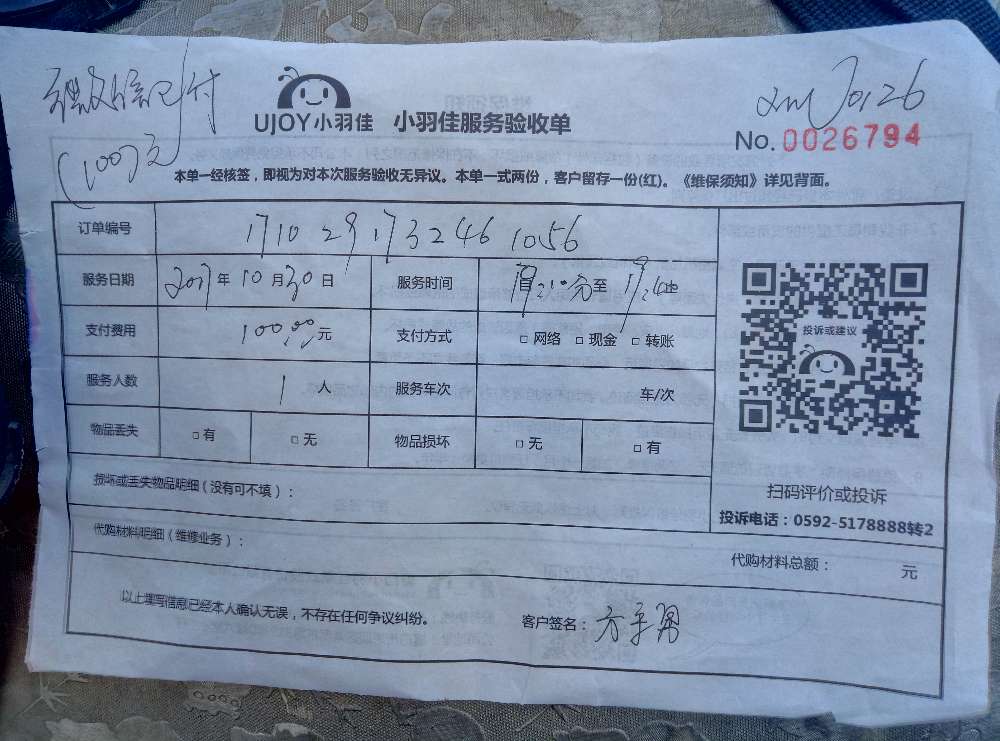 微信已付
(100元)
UJOY小羽佳 小羽佳服务验收单
No. 0026794
本单一经核签，即视为对本次服务验收无异议。本单一式两份，客户留存一份(红)。《维保须知》详见背面。
订单编号 171029173246 1056
服务日期 2017年10月30日 服务时间 至
支付费用 100.00元 支付方式 □ 网络 □ 现金 □ 转账
服务人数 1 人 服务车次 车/次
物品丢失 □ 有 □ 无 物品损坏 □ 无 □ 有
投诉或建议
扫码评价或投诉
投诉电话：0592-5178888转2
损坏或丢失物品明细（没有可不填）：
代购材料明细（维修业务）：
代购材料总额： 元
以上填写信息已经本人确认无误，不存在任何争议纠纷。
客户签名：